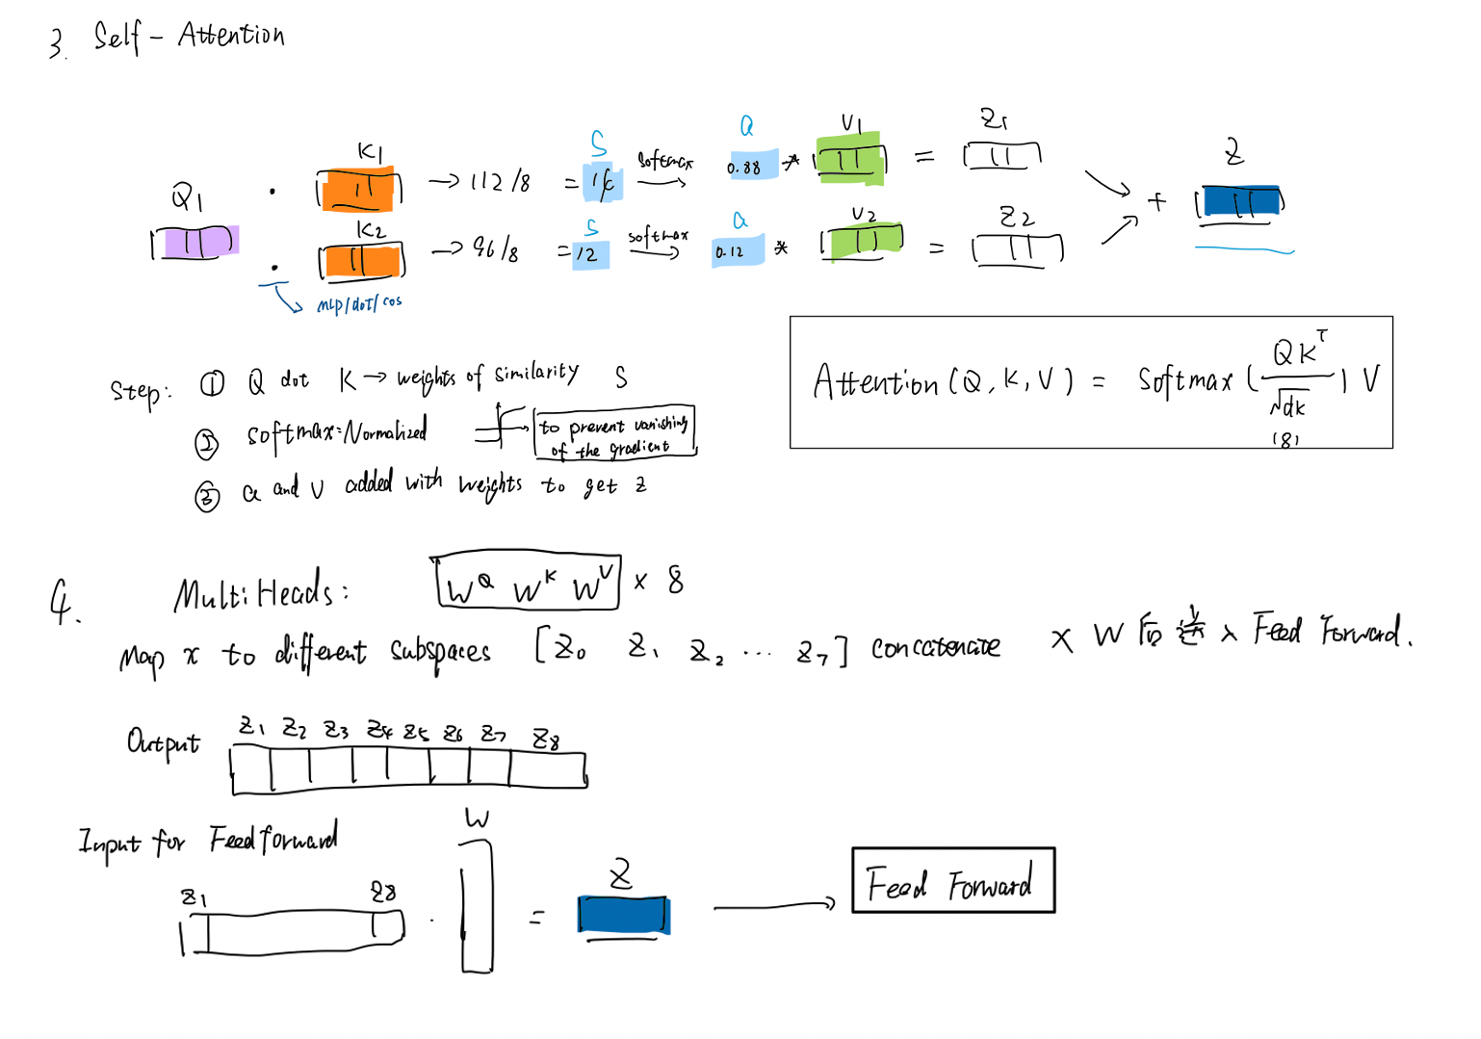 3. Self-Attention
Q1 · K1 → 112/8 = S softmax → a 0.88 * V1 = Z1
· K2 → 96/8 = S 12 softmax → a 0.12 * V2 = Z2
+ Z
mlp/dot/cos
Step: ① Q dot K → weights of similarity S
② softmax: Normalized
to prevent vanishing
of the gradient
③ a and V added with weights to get z
Attention (Q, K, V) = Softmax (QKᵀ/√dk) V
(8)
4. MultiHeads: W^Q W^K W^V × 8
Map x to different subspaces [Z₀ Z₁ Z₂ ... Z₇] concatenate × W 后 Feed Forward.
Output Z1 Z2 Z3 Z4 Z5 Z6 Z7 Z8
Input for Feedforward
Z1 Z8 · W = Z → Feed Forward